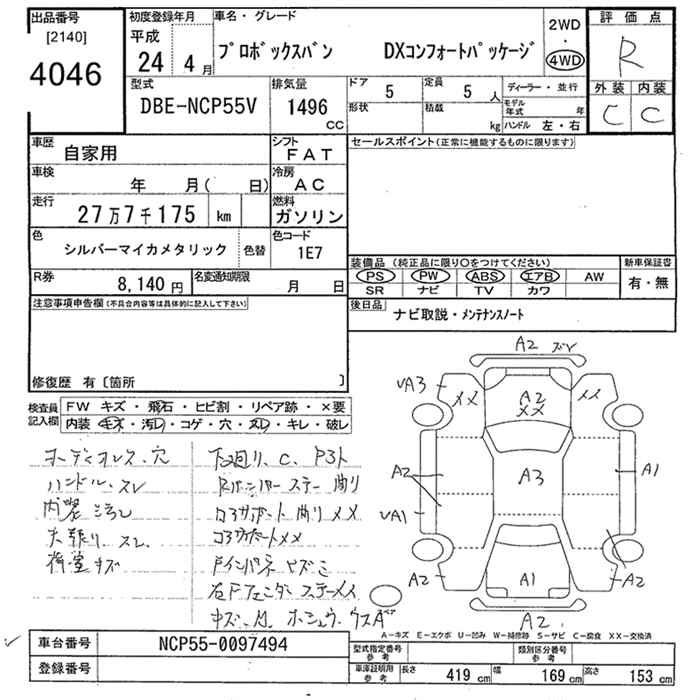 出品番号
[2140]
4046
初度登録年月
平成
24 4月
車名・グレード
プロボックスバン DXコンフォートパッケージ
2WD
・
4WD
評価点
R
外装 内装
C C
型式
DBE-NCP55V
排気量
1496
CC
ドア
5
形状
定員
5 人
積載
kg
ディーラー・並行
モデル年式 年
ハンドル 左・右
車歴
自家用
シフト
FAT
車検
年 月( 日)
冷房
AC
走行
27万7千175 km
燃料
ガソリン
色
シルバーマイカメタリック
色替
色コード
1E7
R券
8,140 円
名変通知期限
月 日
セールスポイント(正常に機能するものに限ります)
装備品 (純正品に限り○をつけてください)
PS PW ABS エアB AW
SR ナビ TV カワ
新車保証書
有・無
後日品
ナビ取説・メンテナンスノート
注意事項申告欄(不具合内容等は具体的に記入して下さい)
修復歴 有 [箇所 ]
検査員
記入欄
FW キズ・飛石・ヒビ割・リペア跡・×要
内装 キズ・汚レ・コゲ・穴・スレ・キレ・破レ
オーディオレス、穴
ハンドル、スレ
内装 汚レ
天張り、スレ
荷室キズ
下廻り、C、
A2
VA3
XX
XX
A2
XX
A2
A3
A1
VA1
A2
A1
A2
A2
A-キズ E-エクボ U-凹み W-補修跡 S-サビ C-腐食 XX-交換済
車台番号
NCP55-0097494
登録番号
型式指定番号
参考
類別区分番号
参考
車庫証明用
参考
長さ 419 cm 幅 169 cm 高さ 153 cm